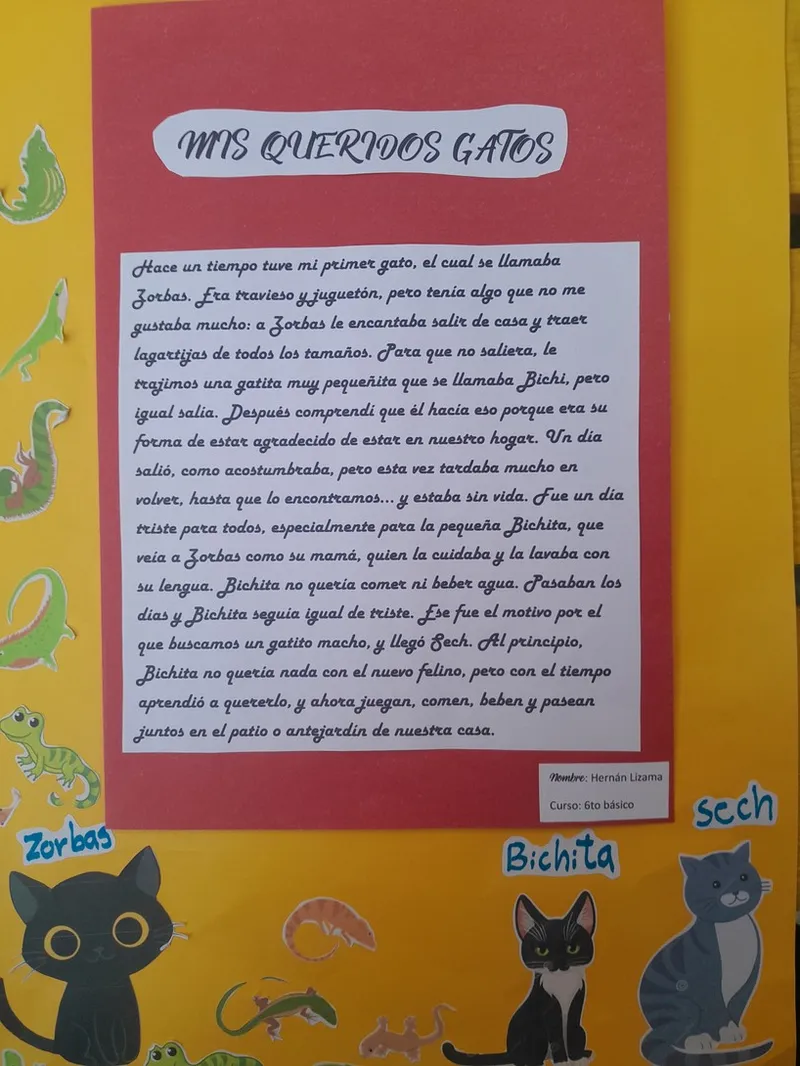 MIS QUERIDOS GATOS
Hace un tiempo tuve mi primer gato, el cual se llamaba
Zorbas. Era travieso y juguetón, pero tenía algo que no me
gustaba mucho: a Zorbas le encantaba salir de casa y traer
lagartijas de todos los tamaños. Para que no saliera, le
trajimos una gatita muy pequeñita que se llamaba Bichi, pero
igual salía. Después comprendí que él hacía eso porque era su
forma de estar agradecido de estar en nuestro hogar. Un día
salió, como acostumbraba, pero esta vez tardaba mucho en
volver, hasta que lo encontramos... y estaba sin vida. Fue un día
triste para todos, especialmente para la pequeña Bichita, que
veía a Zorbas como su mamá, quien la cuidaba y la lavaba con
su lengua. Bichita no quería comer ni beber agua. Pasaban los
días y Bichita seguía igual de triste. Ese fue el motivo por el
que buscamos un gatito macho, y llegó Sech. Al principio,
Bichita no quería nada con el nuevo felino, pero con el tiempo
aprendió a quererlo, y ahora juegan, comen, beben y pasean
juntos en el patio o antejardín de nuestra casa.
Nombre: Hernán Lizama
Curso: 6to básico
Zorbas
Bichita
sech